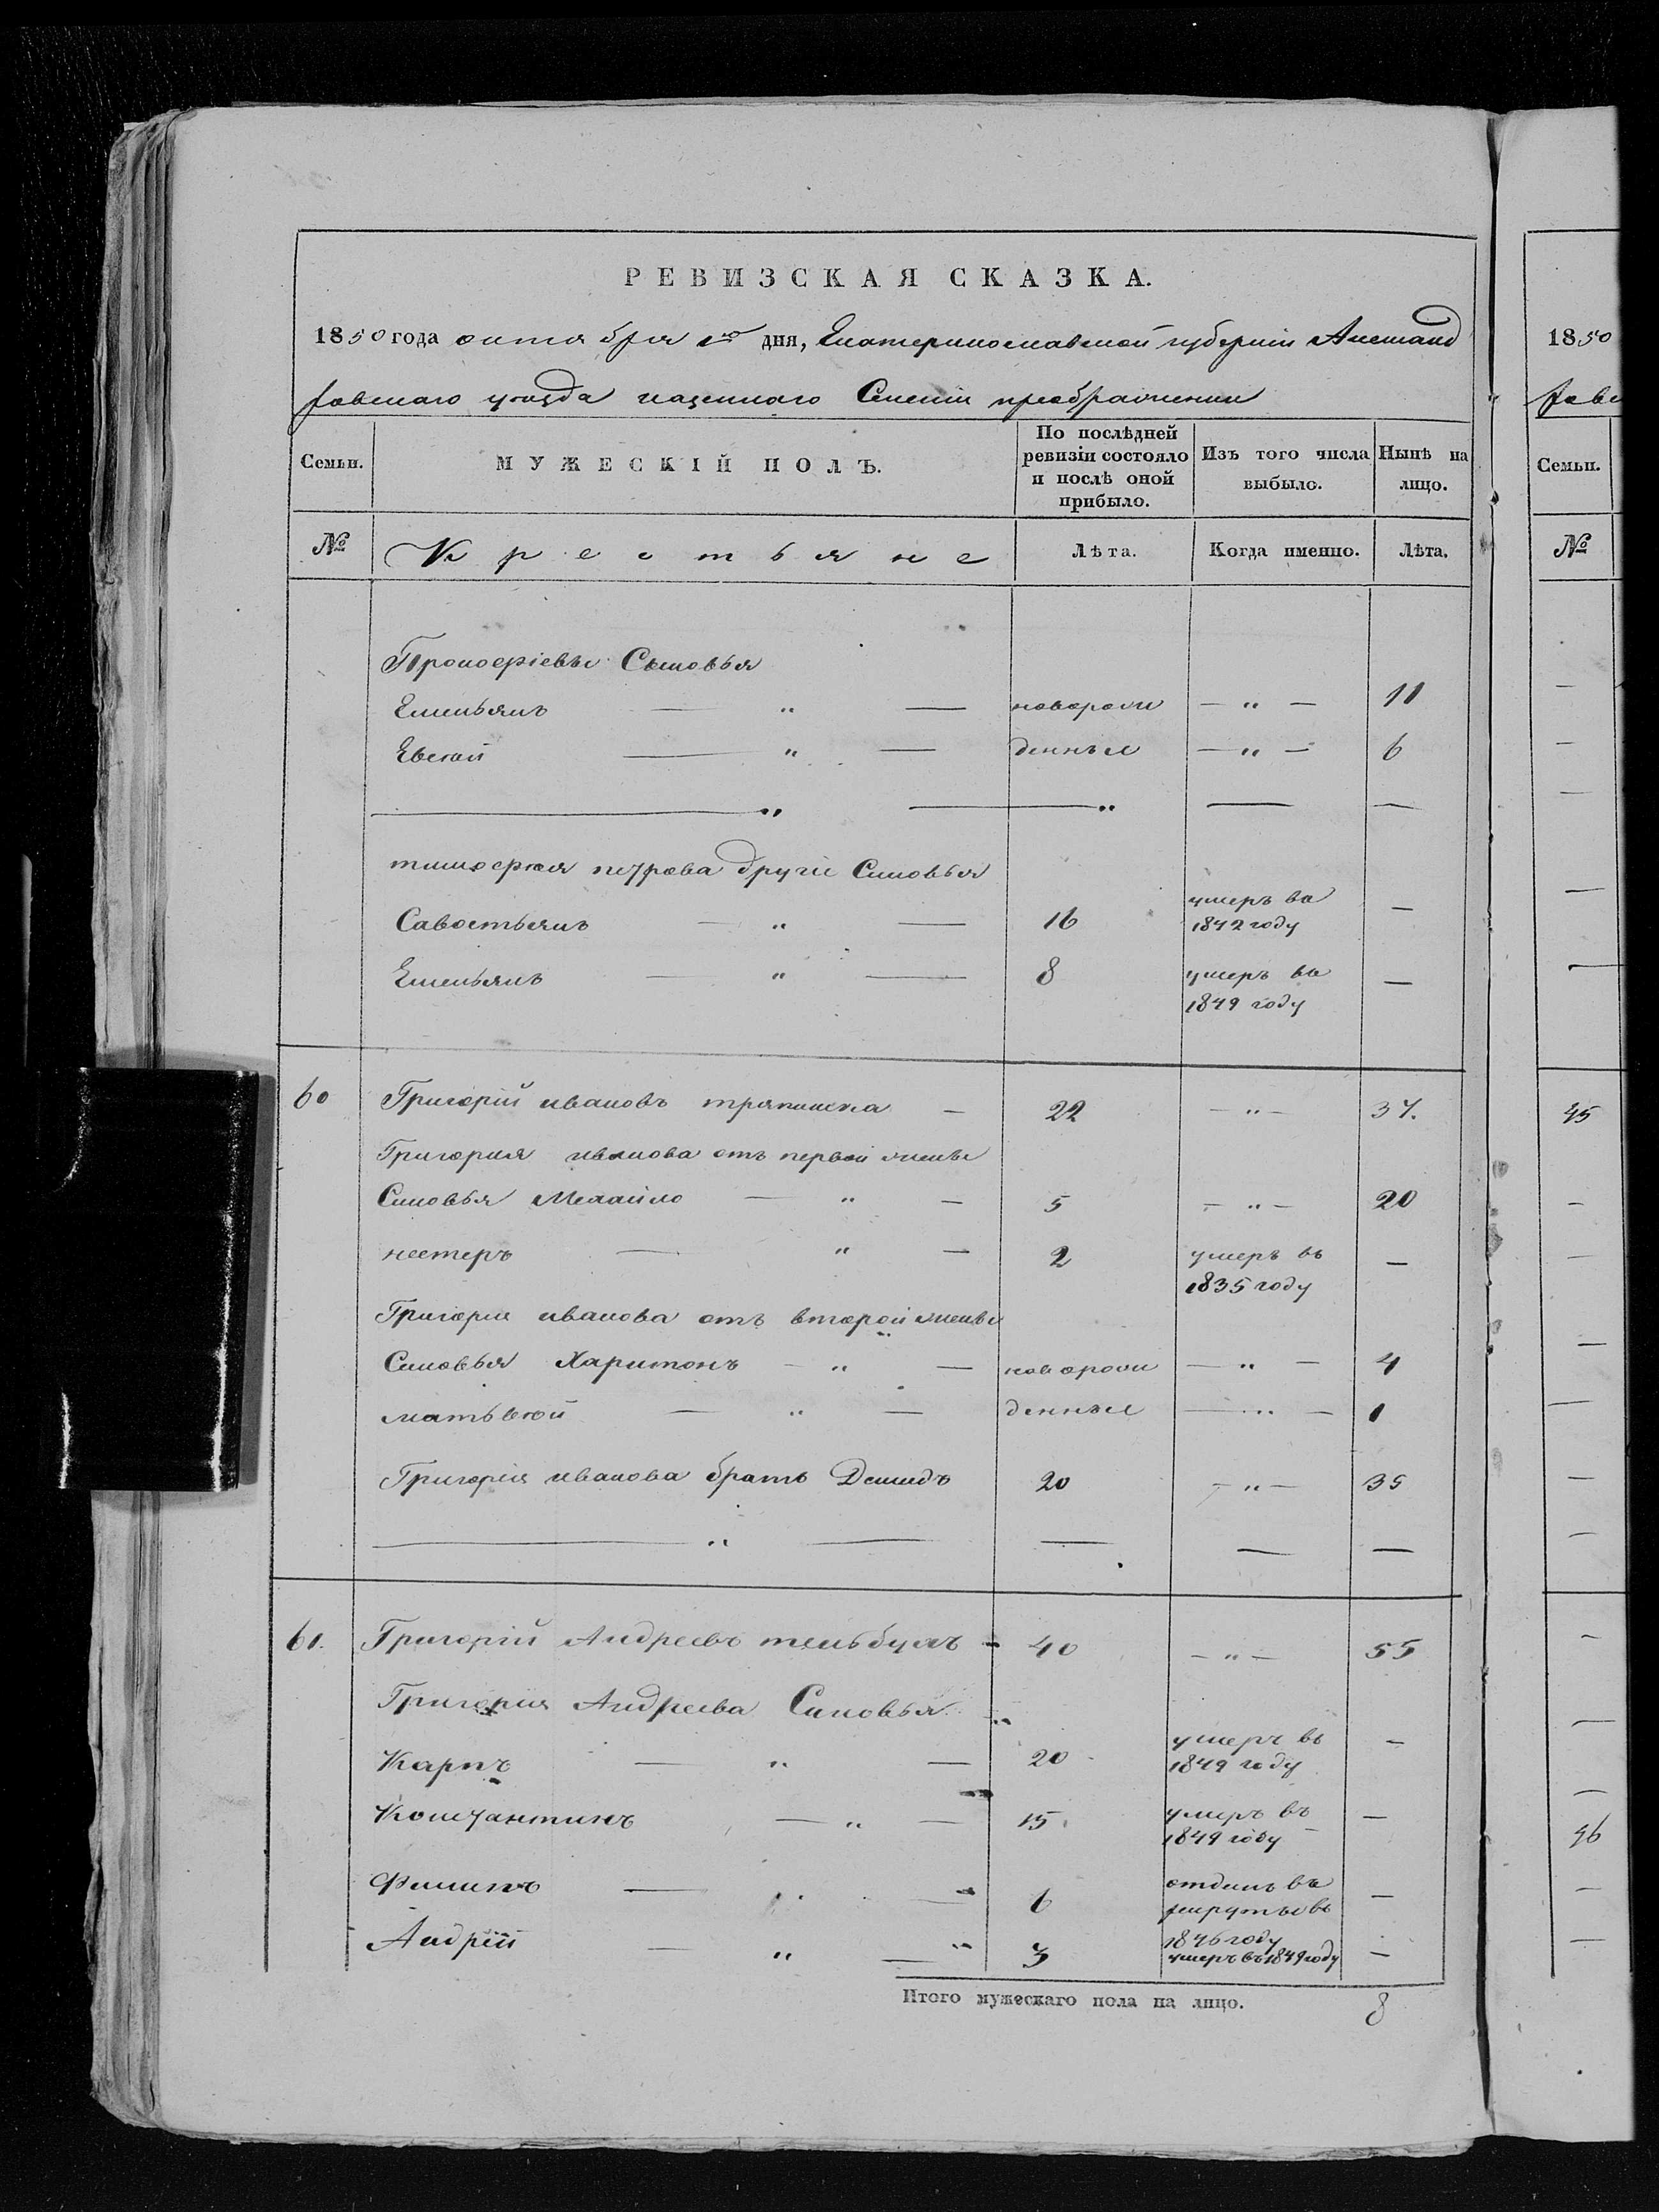 РЕВИЗСКАЯ СКАЗКА.
1850 года октября 1го дня, Екатеринославской губерніи Александ
ровскаго уезда казенного Селенія преображенки
Семьи. МУЖЕСКІЙ ПОЛЪ. По послѣдней ревизіи состояло и послѣ оной прибыло. Изъ того числа выбыло. Нынѣ на лицо.
№ Крестьяне Лѣта. Когда именно. Лѣта.
Прокофіевы Сыновья
Емельянъ — " — новорож — " — 11
Евсей — " — денные — " — 6
— " — — " — —
тимофея петрова другіе Синовья
Савостьянъ — " — 16 умеръ въ 1842 году —
Емельянъ — " — 8 умеръ въ 1849 году —
60 Григорій ивановъ — 22 — " — 37.
Григория иванова отъ первой жены
Синовья Михайло — " — 5 — " — 20
нестеръ — " — 2 умеръ въ 1835 году —
Григория иванова отъ второй жены
Синовья Харитонъ — " — новорож — " — 4
матьвей — " — денные — " — 1
Григорія иванова братъ Демидъ 20 — " — 35
— " — — — —
61. Григорій Андреевъ — 40 — " — 55
Григория Андреева Синовья
Карпъ — " — 20 умеръ въ 1849 году —
Константинъ — " — 15 умеръ въ 1849 году —
Филипъ — " — 6 отданъ въ рекруты въ 1846 году —
Андрей — " — 3 умеръ въ 1849 году —
Итого мужескаго пола на лицо. 8
1850
Семьи.
№
45
46